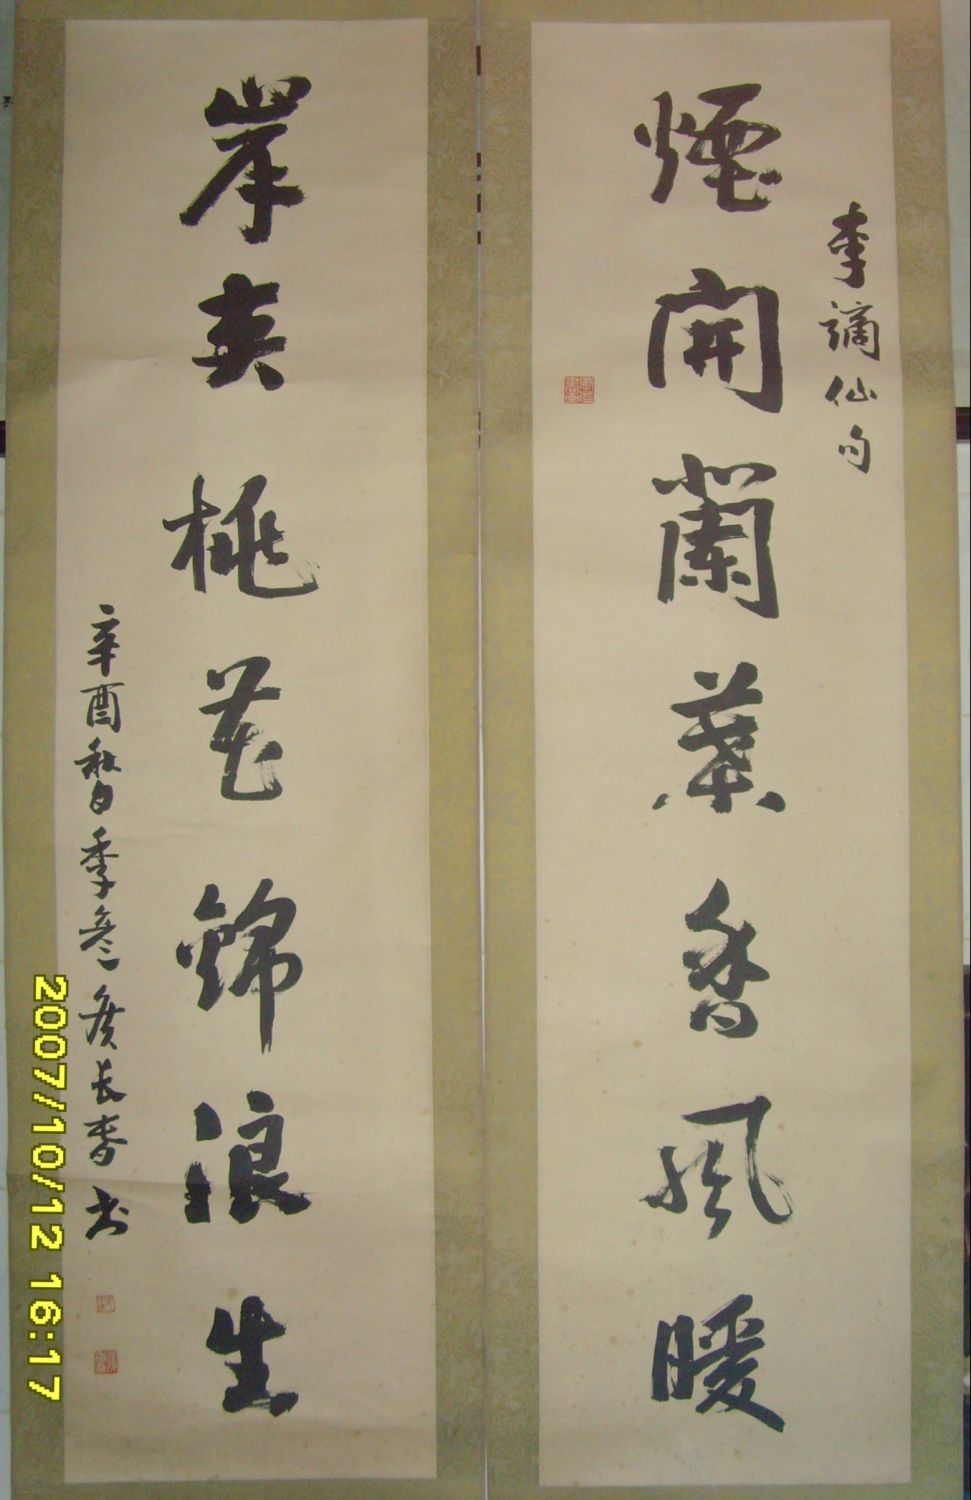 李謫仙句
煙開蘭葉香風暖
岸夾桃花錦浪生
辛酉秋日季彦
長春书
2007/10/12 16:17